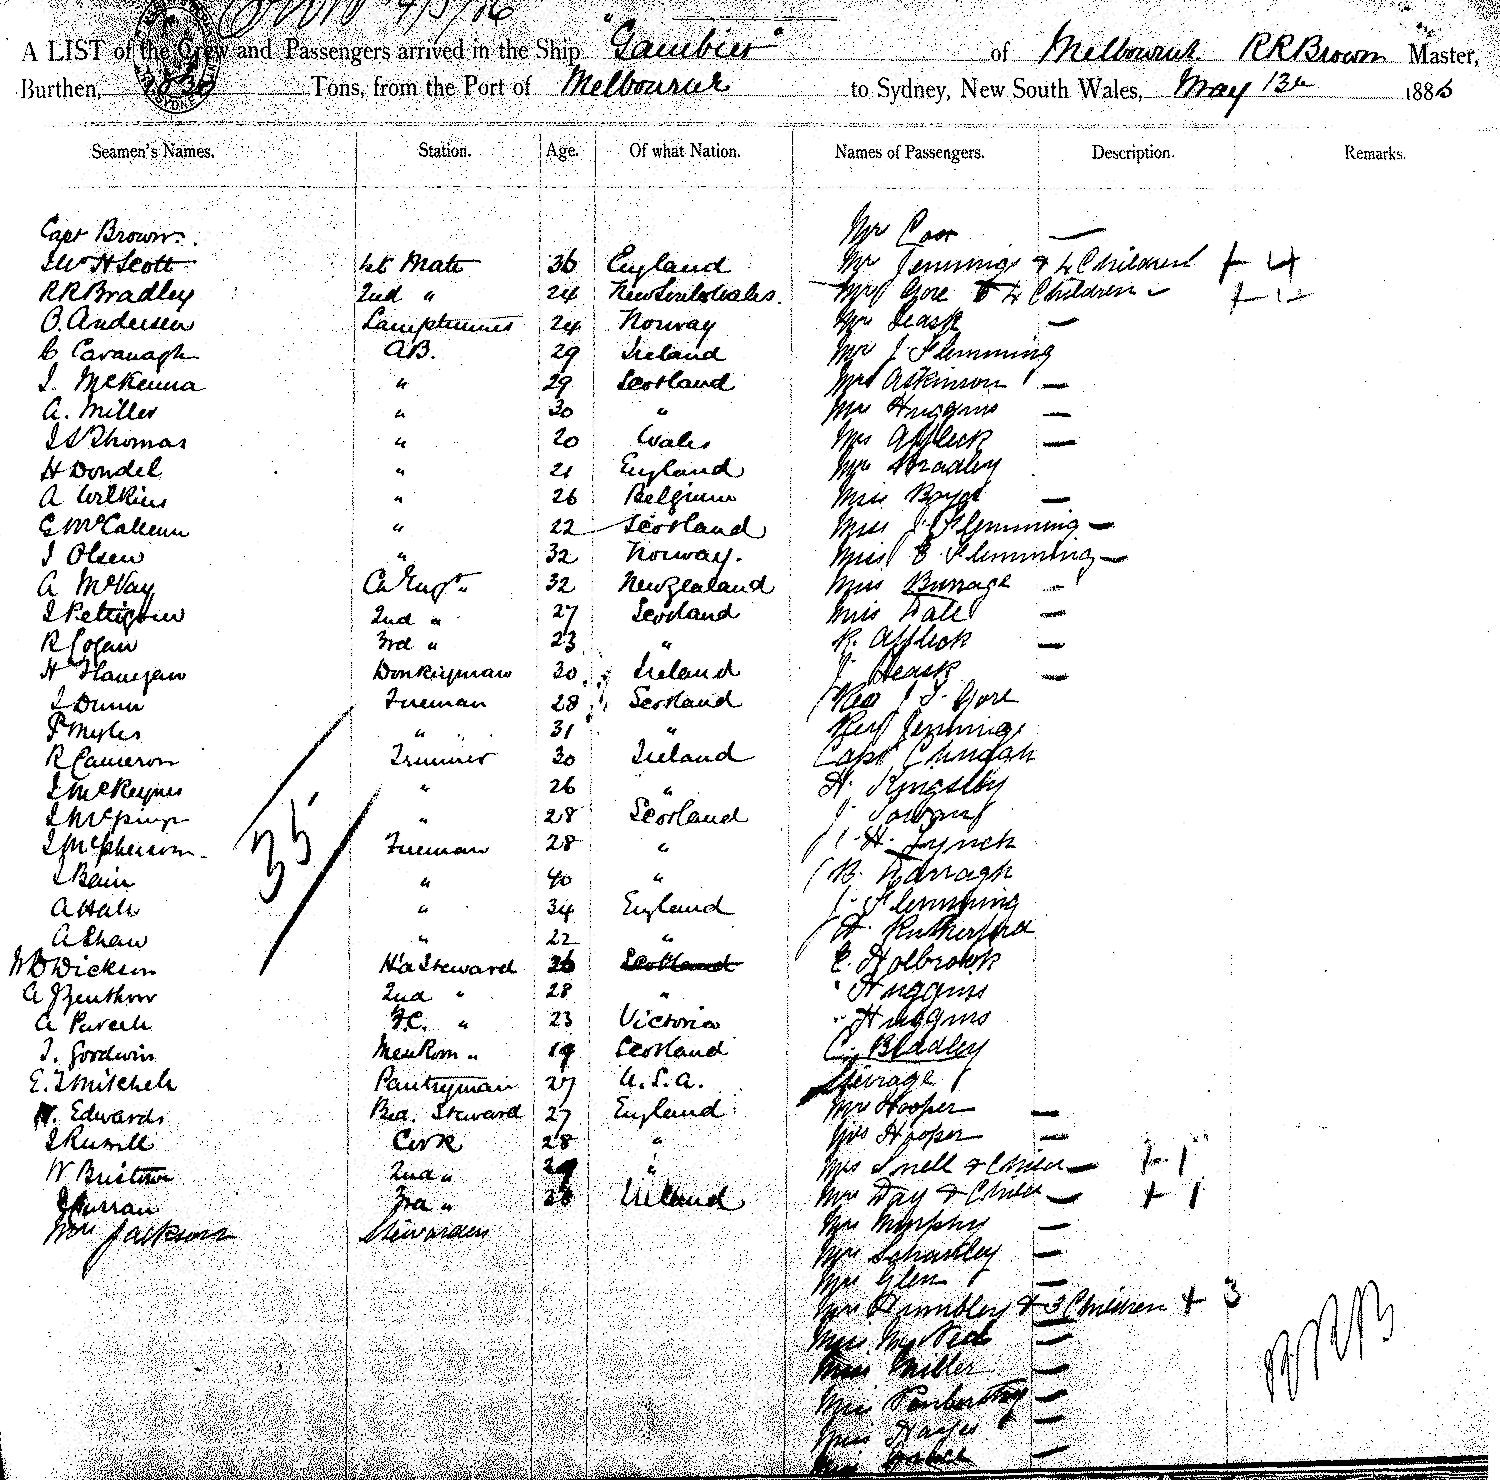 A LIST of the Crew and Passengers arrived in the Ship "Gambier" of Melbourne R R Brown Master,
Burthen, Tons, from the Port of Melbourne to Sydney, New South Wales, May 13th 1886
Seamen's Names. Station. Age. Of what Nation. Names of Passengers. Description. Remarks.
Capt Brown. Mr Coon —
H Scott 1st Mate 36 England Mrs Jennings & 4 Children + 4
R R Bradley 2nd " 24 New South Wales. Mrs Gore & 4 Children — + 4
O. Andersen Lamptrimmer 24 Norway Mrs Heask —
C Cavanagh A.B. 29 Ireland Mrs J Flemming
J. McKenna " 29 Scotland Mrs Atkinson —
A. Miller " 30 " Mrs Huggins —
J S Thomas " 20 Wales Mrs Affleck —
H Dondel " 21 England Mrs Bradley
A Wilkins " 26 Belgium Miss Boyd —
C McCallum " 22 Scotland Miss J Flemming —
J Olsen " 32 Norway. Miss E Flemming —
A McVay Ch Engr " 32 New Zealand Miss Burrage —
J Pettigrew 2nd " 27 Scotland Miss Dale —
R Logan 3rd " 23 " R. Affleck —
H Flanigan Donkeyman 30 Ireland J. Heask —
J Dunn Fireman 28 Scotland Rev J. S. Gore
P Myles " 31 " Rev Jennings
R Cameron Trimmer 30 Ireland Capt
J " 26 " H. Kingsley
J " 28 Scotland J.
J McPherson. Fireman 28 " H. Lynch
35
J Bain " 40 " B. Darragh
A Hale " 34 England J. Flemming
A Shaw " 22 " H. Rutherford
W D Dickson Hd Steward 26 Scotland E. Holbrook
A 2nd " 28 " " Huggins
A Purcell F.C. " 23 Victoria " Huggins
J. Goodwin Messroom " 19 Scotland C. Bradley
E. J Mitchell Pantryman 27 U.S.A. Steerage
H. Edwards Bed. Steward 27 England Mrs Hooper —
J Russell Cook 28 " Miss Hooper —
W Bristow 2nd " 29 " Mrs Snell & Child — + 1
J Curran 3rd " 28 Ireland Mrs Day & Child — + 1
Mrs Jackson Stewardess Mrs Murphy —
Mrs —
Mrs Glen —
Mrs Brumbley & 3 Children + 3
Miss —
Miss Miller —
Miss —
Miss Hayes —
Miss —
RRB